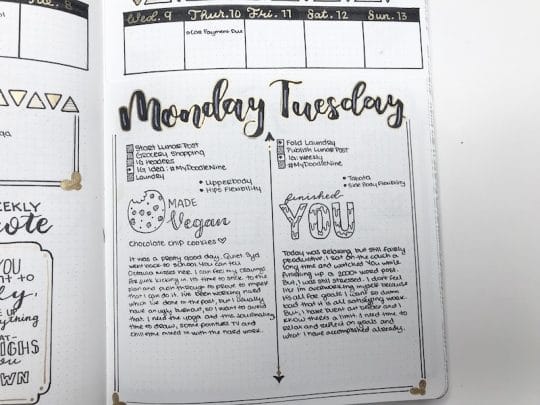 Tue. 8
Wed. 9 Thur. 10 Fri. 11 Sat. 12 Sun. 13
Car Payment Due
Monday Tuesday
Start Lunar Post
Grocery Shopping
IG Headers
IG Idea: #MyDoodleNine
Laundry
Upperbody
Hips Flexibility
MADE
Vegan
Chocolate chip cookies
It was a pretty good day. Quiet. Syd
went back to school. You can tell
Octavia misses her. I can feel my cravings
for junk kicking in. It's time to stick to the
plan and push through to prove to myself
that I can do it. I've been working more
which I've done in the past, but I usually
have an ugly burnout, so I want to avoid
that. I need the yoga and this journaling
time to draw, some
TV and
chill time mixed in with the hard work.
Fold Laundry
Publish Lunar Post
IG: Weekly
#MyDoodleNine
Tabata
Side Body Flexibility
finished
YOU
Today was relaxing but still fairly
productive. I sat on the couch a
long time and watched You while
finishing up a 2000 word post.
But, I was still stressed. I don't feel
like I'm overworking myself because
it's all for goals I want so damn
bad that it is all satisfying work.
But, I have burnt out before and I
know there's a limit. I need time to
relax and reflect on goals and
what I have accomplished already.
WEEKLY
Quote
YOU
UP
THAT
YOU
OWN